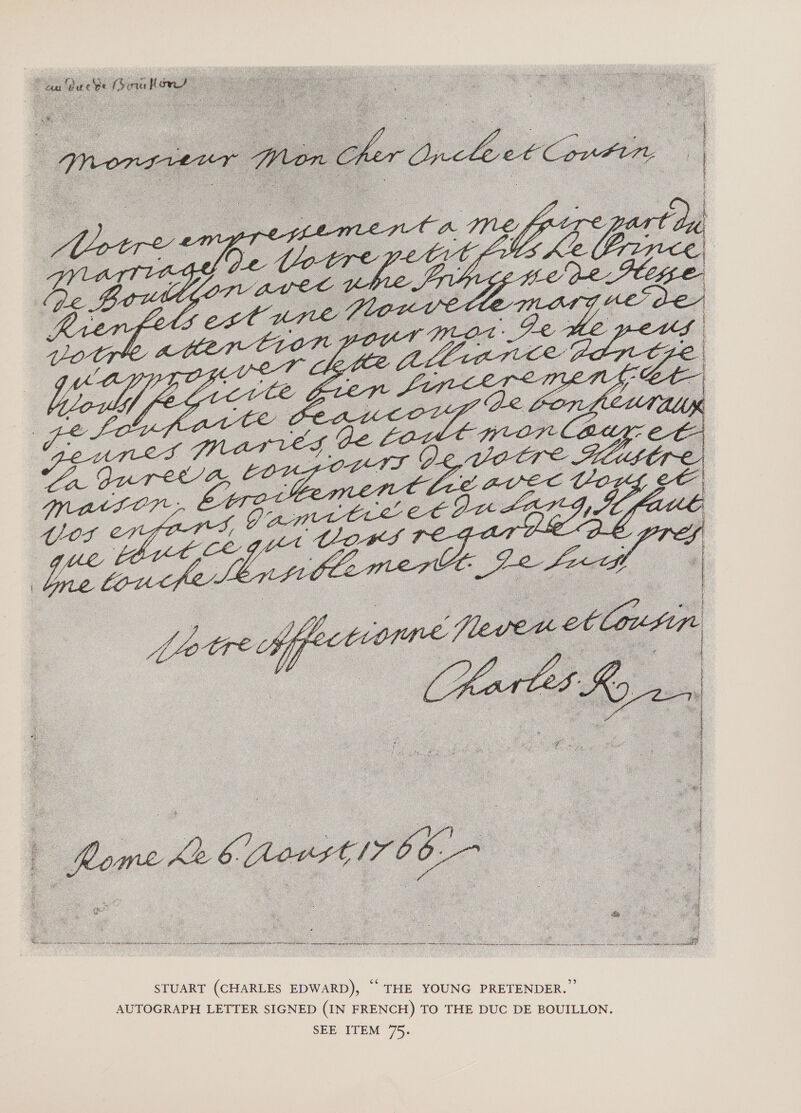 au Duc de Bouillon
Monsieur Mon Cher Oncle et Cousin,
Votre empressement a me faire part du
Marriage de Votre petit fils Le Prince
De Bouillon avec une Princesse de Hesse
Rienfels est une Nouvelle marque de
Votre attention pour moi. Je ne peus
qu'approuver cette Alliance dont je
Vous felicite bien sincerement. et
je souhaite beaucoup de bonheur aux
jeunes Mariés de tout mon Cœur. et
La Dureé a toujours De Votre Illustre
Maison. Etroitement lié avec Vous et
Vos enfans, D'amitié et Du Sang, Il faut
que tout ce qui Vous regarde de pres
me touche sensiblement. Je suis,
Votre Affectionné Neveu et Cousin
Charles R.
Rome Le 6. Aoust, 1766.
STUART (CHARLES EDWARD), “THE YOUNG PRETENDER.”
AUTOGRAPH LETTER SIGNED (IN FRENCH) TO THE DUC DE BOUILLON.
SEE ITEM 75.